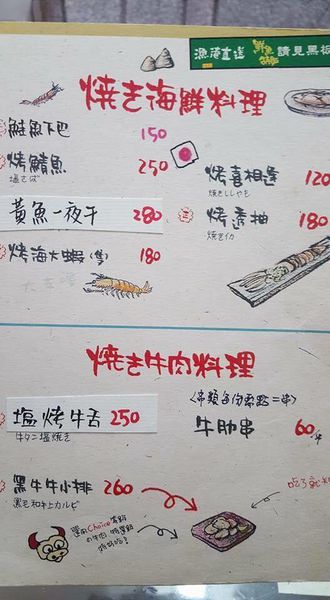 漁港直送 鮮魚 請見黑板
焼き海鮮料理
鮭魚下巴 150
烤鯖魚 250
塩さば
黃魚一夜干 280
烤海大蝦(隻) 180
大エビ
烤喜相逢 120
焼きししゃも
烤透抽 180
焼きイカ
焼き牛肉料理
塩烤牛舌 250
牛タン塩焼き
(每類每份需點二串)
牛肋串 60/串
黑牛牛小排 260
黑毛和牛上カルビ
選用Choice等級
の牛肉